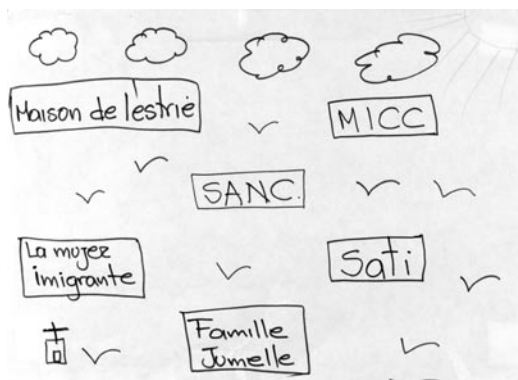 Maison de l'estrie
MICC
SANC.
La mujer
imigrante
Sati
Famille
Jumelle